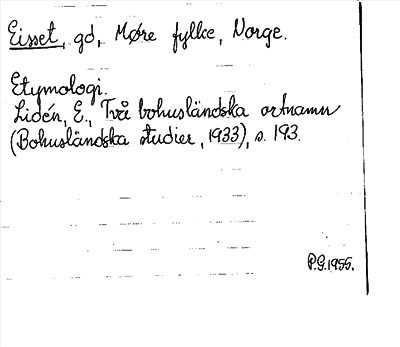 Eisset, gd, Møre fylke, Norge.
Etymologi.
Lidén, E., Två bohusländska ortnamn
(Bohusländska studier, 1933), s. 193.
P.G. 1955.